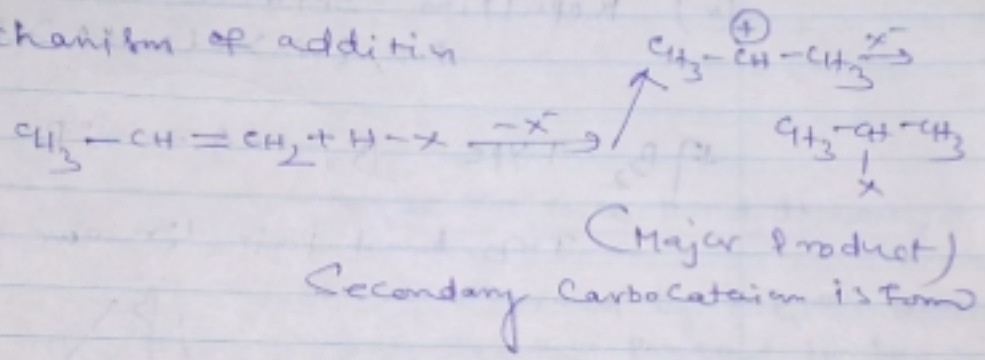 chanism of addition
CH3 - CH⊕ - CH3 X⁻→
CH3 - CH = CH2 + H - X -X⁻→
CH3 - CH - CH3
X
(Major Product)
Secondary Carbocataion is Form